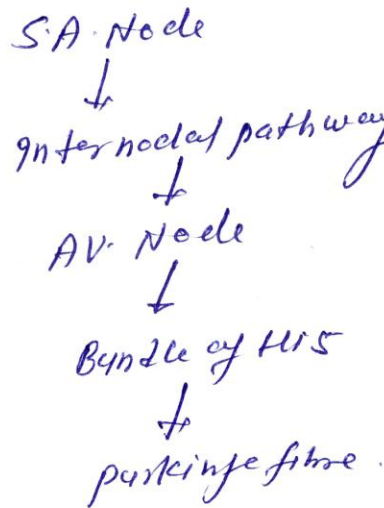 S.A. Node
Internodal pathway
AV. Node
Bundle of His
purkinje fibre.